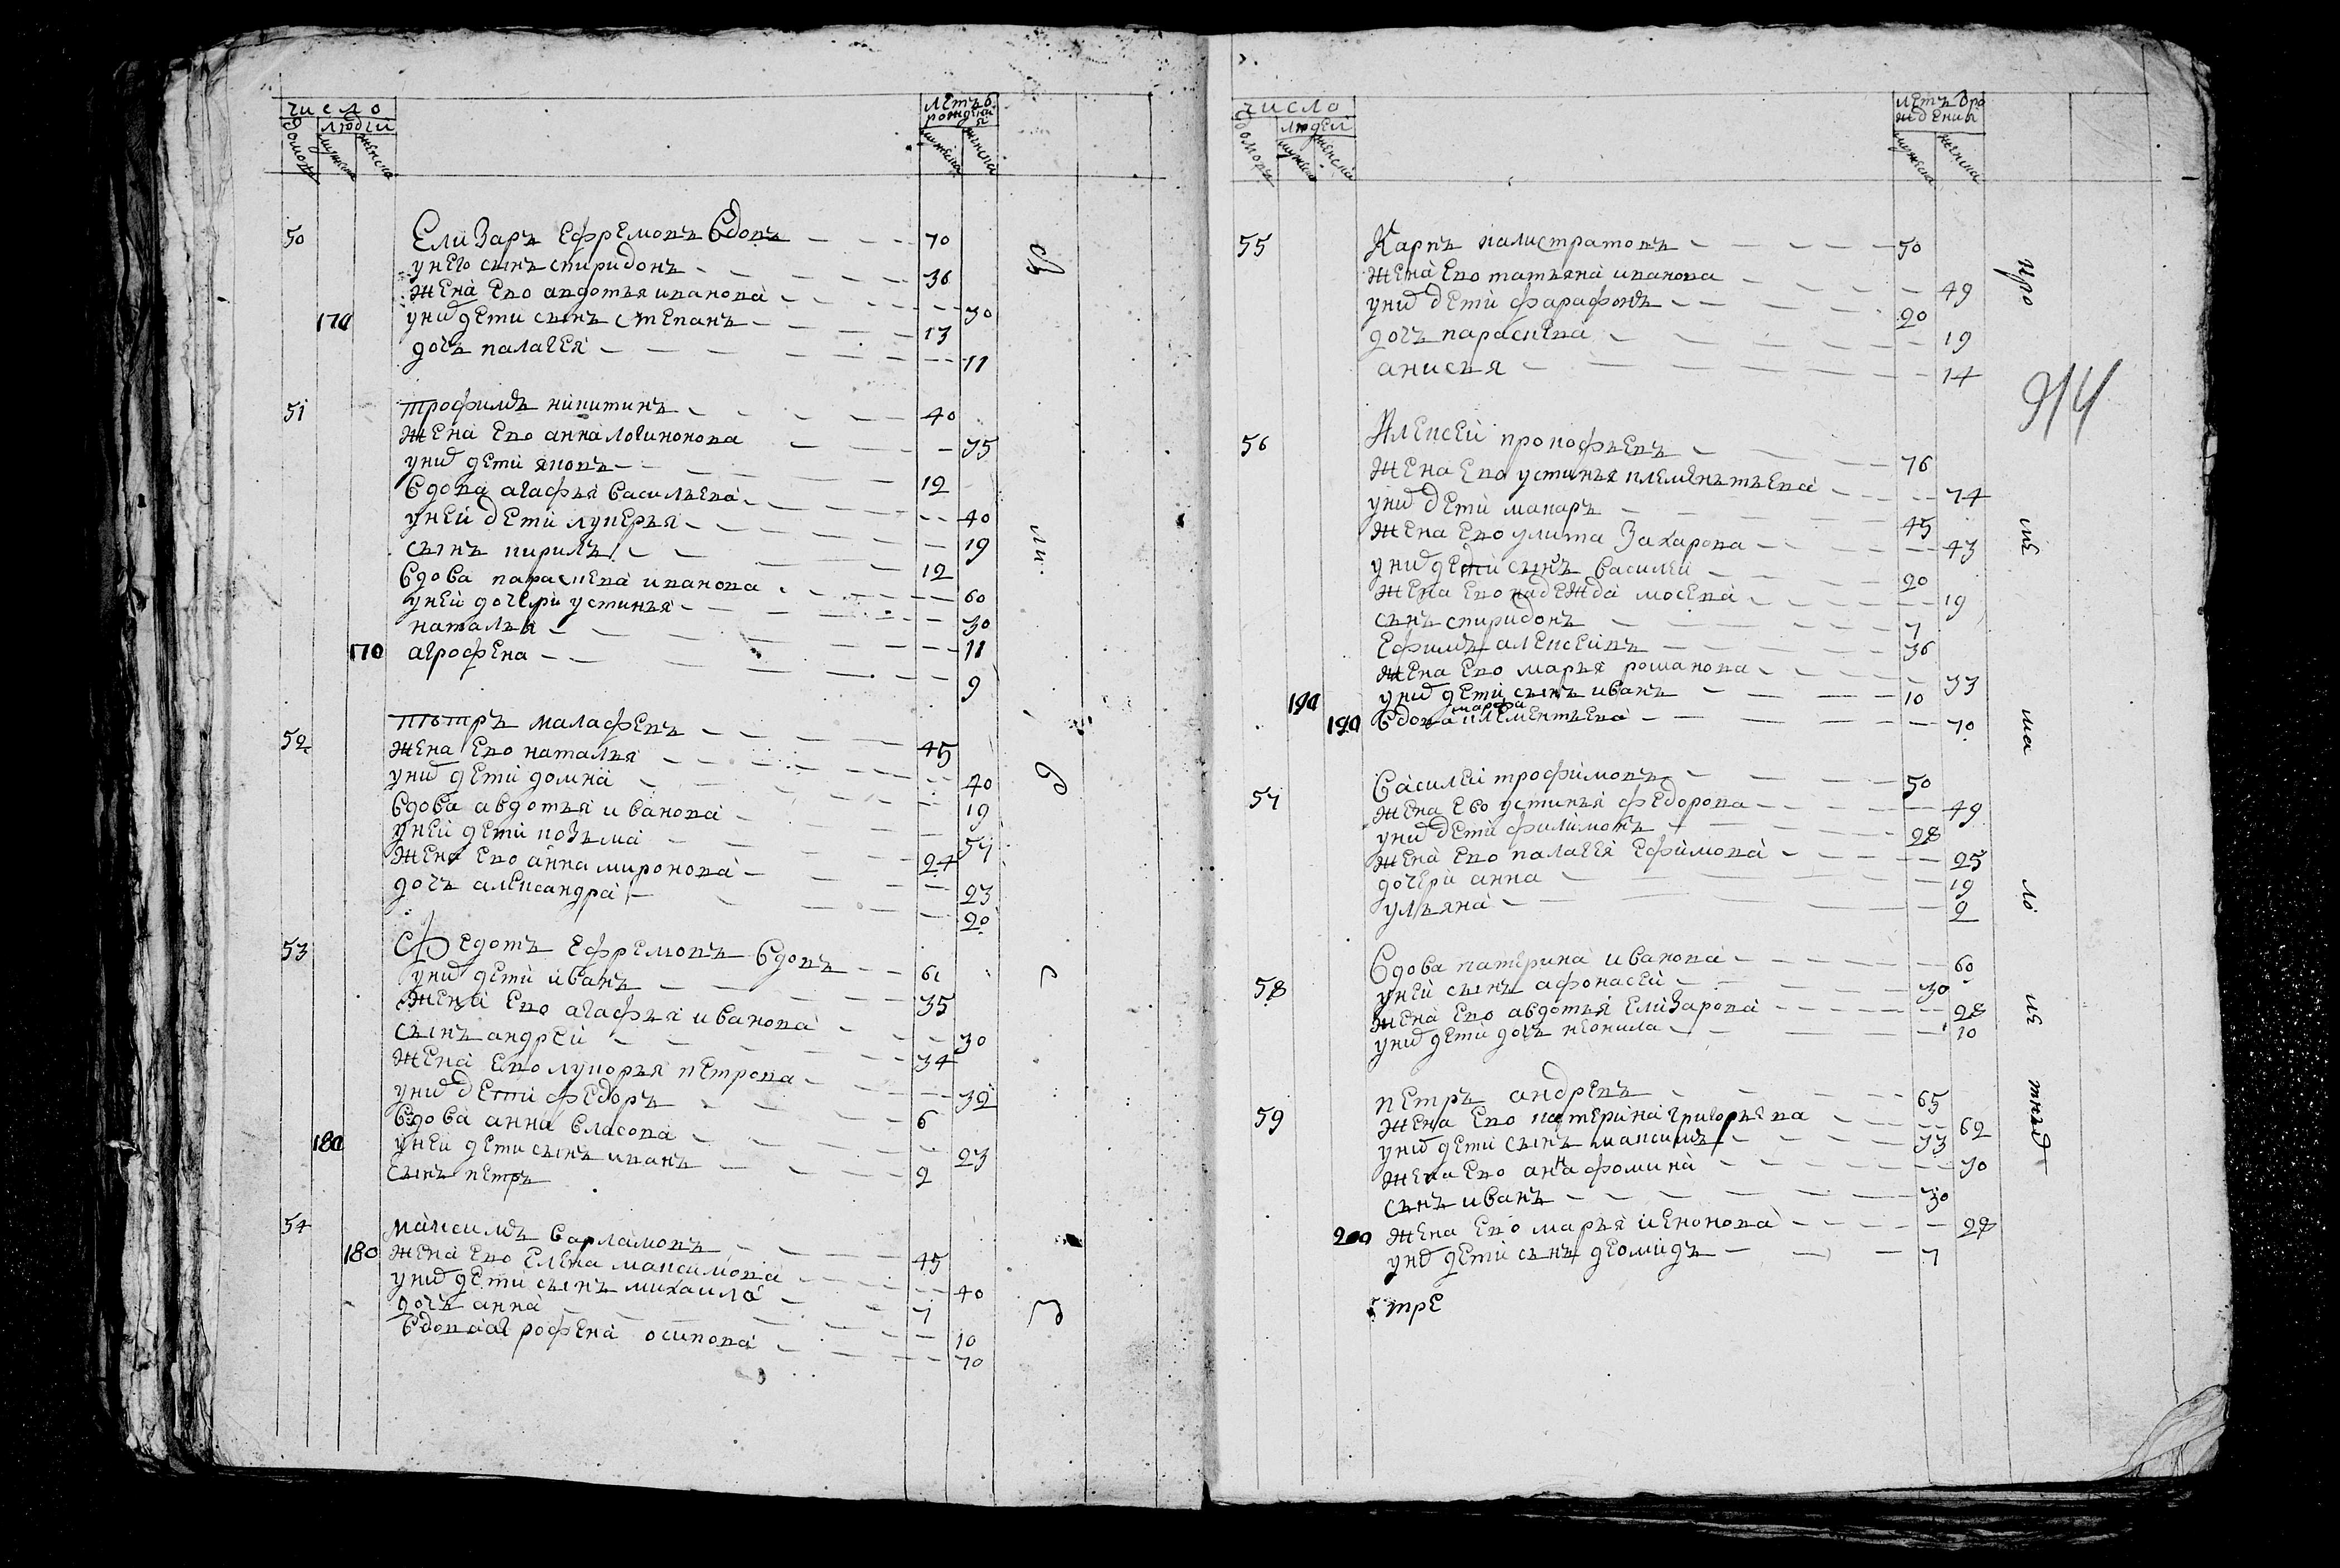 число
летъ б
рождения
людей
домовъ
мужеска
женска
мужеска
женска
50 Елизаръ Ефремовъ вдовъ 70
унего сынъ спиридонъ 36
жена ево авдотья иванова 30
170 уних дети сынъ степанъ 13
дочь палагея 11
51 трофимъ никитинъ 40
жена ево анна логинонова 35
уних дети яковъ 12
вдова агафья васильева 40
уней дети лукерья 19
сынъ кирилъ 12
вдова параскева иванова 60
уней дочери устинья 30
наталья 11
170 агрофена 9
52 петръ малафевъ 45
жена ево наталья 40
уних дети домна 19
вдова авдотья иванова 57
уней дети козьма 24
жена ево анна миронова 23
дочь александра 20
53 Федотъ ефремовъ вдовъ 61
уних дети иванъ 35
жена ево агафья иванова 30
сынъ андрей 34
жена ево лукорья петрова 32
уних дети федоръ 6
вдова анна власова 23
180 уней дети сынъ иванъ 2
сынъ петръ
54 максимъ варламовъ 45
180 жена ево елена максимова 40
уних дети сынъ михаила 7
дочь анна 10
вдова агрофена осипова 70
число
летъ вро
ждения
людей
домовъ
мужеска
женска
мужеска
женска
55 Карпъ калистратовъ 50
жена ево татьяна иванова 49
уних дети фарафонъ 20
дочь параскева 19
анисья 14
914
56 Алексей прокофьевъ 76
жена ево устинья клеменьтьева 74
уних дети макаръ 45
жена ево улита Захарова 43
уних дети сынъ василей 20
жена ево надежда мосева 19
сынъ спиридонъ 7
ефимъ алексеивъ 36
жена ево марья романова 33
190 уних дети сынъ иванъ 10
марфа
190 вдова клементьева 70
57 василей трофимовъ 50
жена ево устинья федорова 49
уних дети филимонъ 28
жена ево палагея ефимова 25
дочери анна 19
ульяна 2
58 вдова катерина иванова 60
уней сынъ афонасей 30
жена ево авдотья елизарова 28
уних дети дочь неонила 10
59 петръ андревъ 65
жена ево катерина григорьева 62
уних дети сынъ максимъ 33
жена ево анна фомина 30
сынъ иванъ 30
200 жена ево марья иенонова 28
уних дети сынъ деомидъ 7
тре